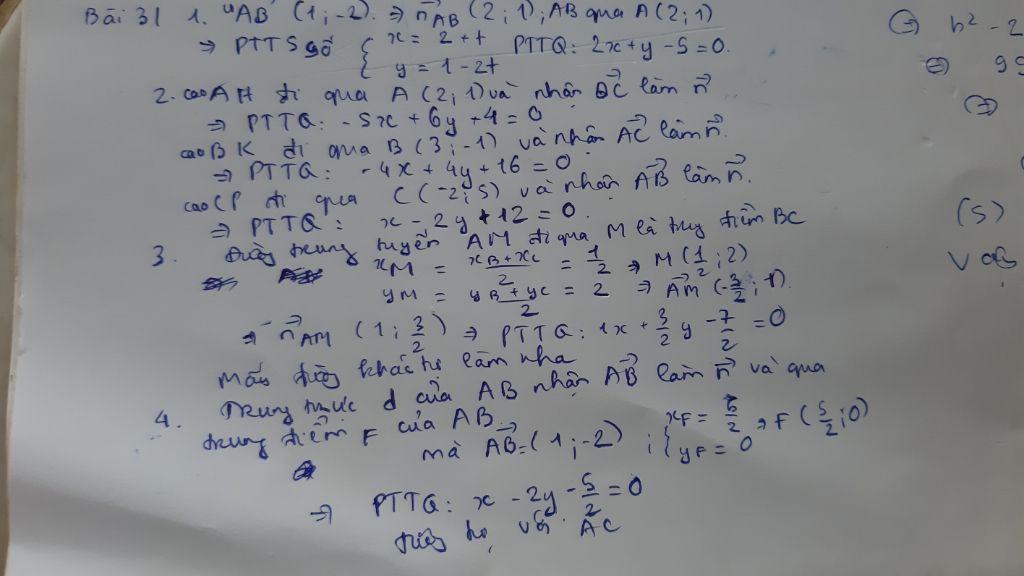 Bài 3/ 1. u AB (1; -2). ⇒ n⃗ AB (2; 1); AB qua A (2; 1)
⇒ PTTS số { x = 2 + t PTTQ: 2x + y - 5 = 0.
y = 1 - 2t
2. cao AH đi qua A (2; 1) và nhận BC⃗ làm n⃗
⇒ PTTQ: -5x + 6y + 4 = 0
cao BK đi qua B (3; -1) và nhận AC⃗ làm n⃗.
⇒ PTTQ: -4x + 4y + 16 = 0
cao CP đi qua C (-2; 5) và nhận AB⃗ làm n⃗.
⇒ PTTQ: x - 2y + 12 = 0.
3. đường trung tuyến AM đi qua M là trung điểm BC
xM = (xB + xC)/2 = 1/2 ⇒ M (1/2; 2)
yM = (yB + yC)/2 = 2 ⇒ AM⃗ (-3/2; 1).
⇒ n⃗ AM (1; 3/2) ⇒ PTTQ: 1x + 3/2 y - 7/2 = 0
Mấy đường khác tự làm nha
4. Trung trực d của AB nhận AB⃗ làm n⃗ và qua
trung điểm F của AB.
mà AB⃗ = (1; -2) ; { xF = 5/2 , F (5/2; 0)
yF = 0
⇒ PTTQ: x - 2y - 5/2 = 0
với AC
⇔ b² - 2
⇔ 99
⇔
(S)